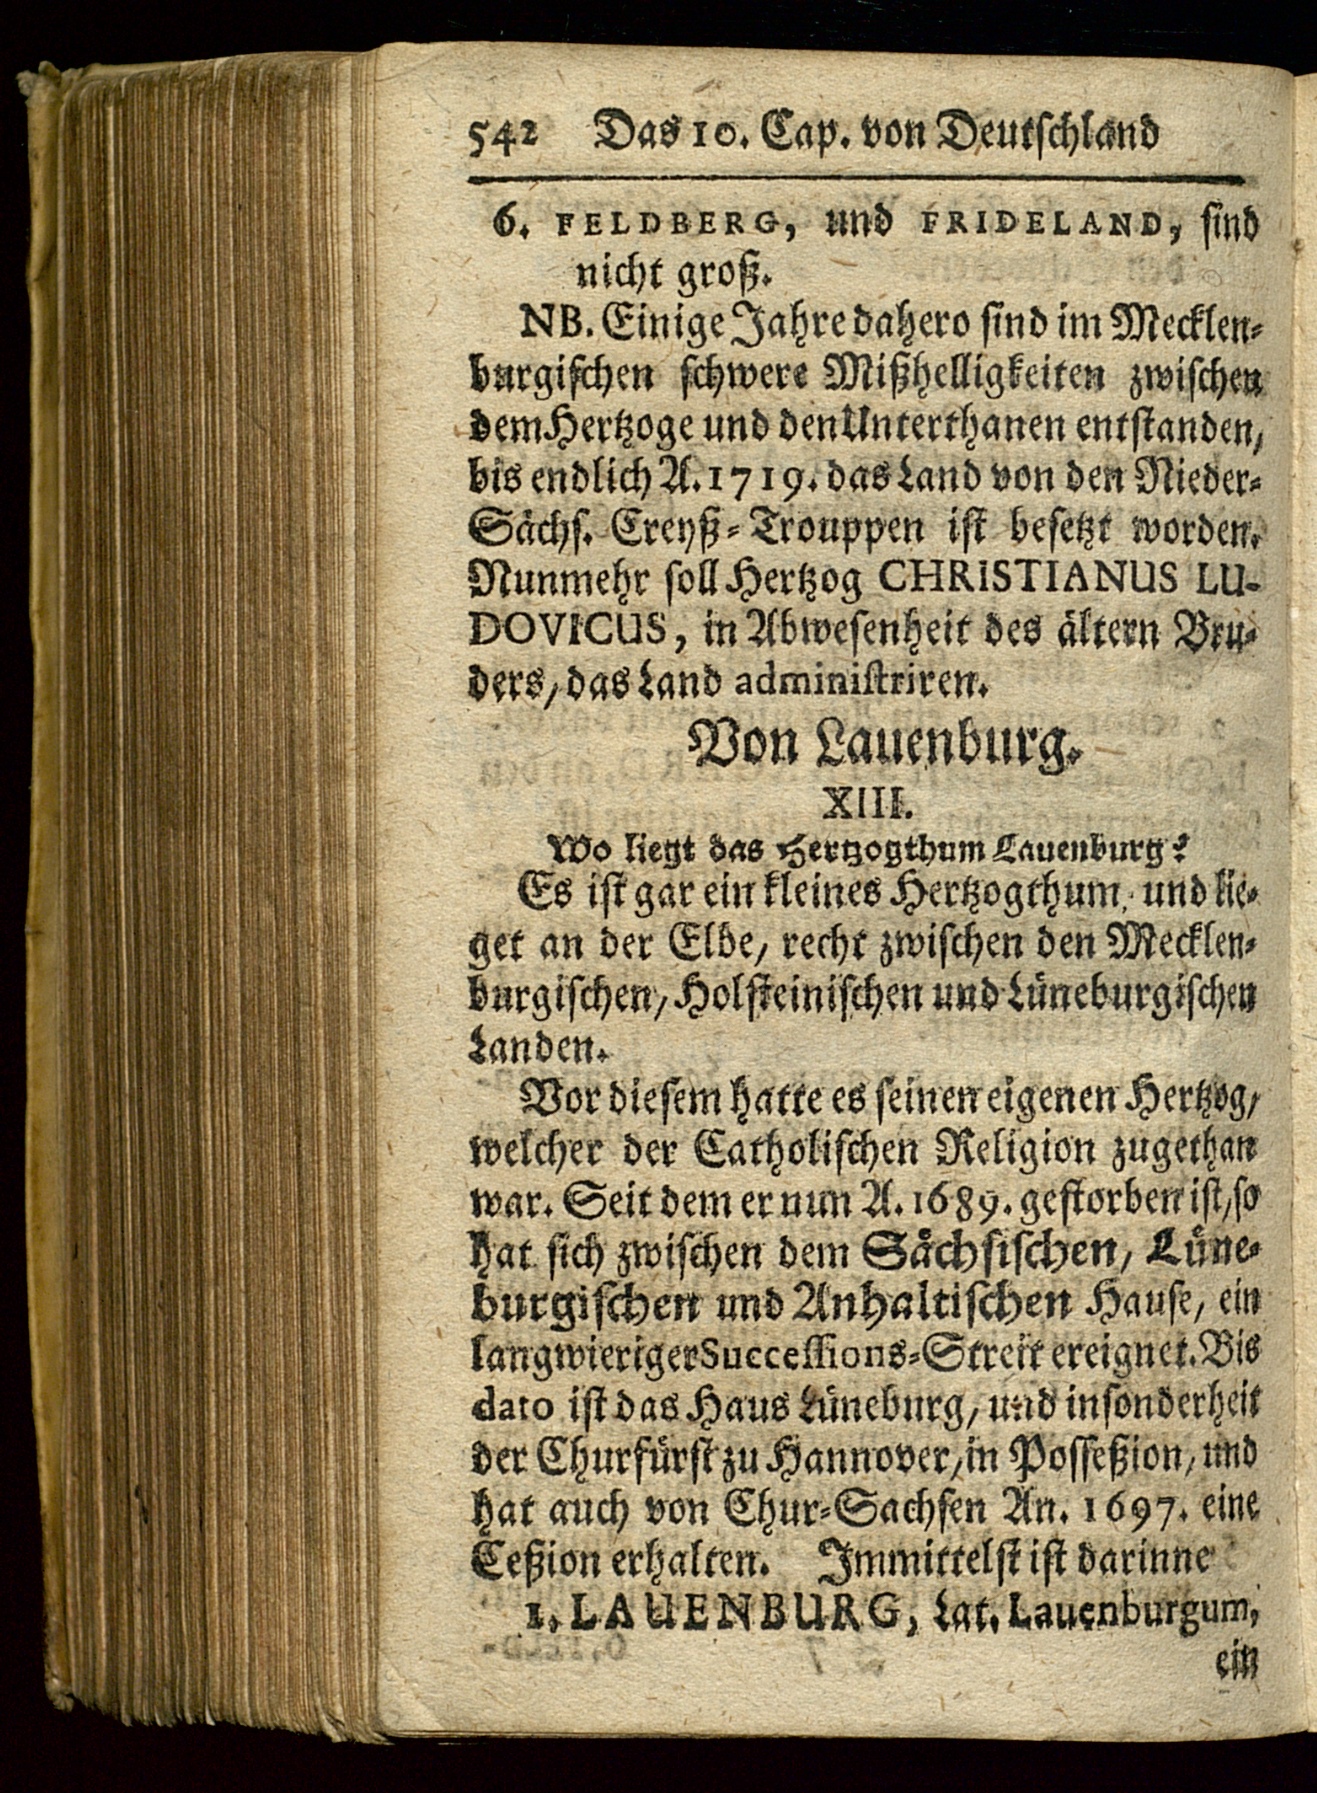 542 Das 10. Cap. von Deutschland
6. FELDBERG, und FRIDELAND, sind
nicht groß.
NB. Einige Jahre dahero sind im Mecklen-
burgischen schwere Mißhelligkeiten zwischen
dem Hertzoge und den Unterthanen entstanden,
bis endlich A. 1719. das Land von den Nieder-
Sächs. Creyß-Trouppen ist besetzt worden.
Nunmehr soll Hertzog CHRISTIANUS LU-
DOVICUS, in Abwesenheit des ältern Bru-
ders, das Land administriren.
Von Lauenburg.
XIII.
Wo liegt das Hertzogthum Lauenburg?
Es ist gar ein kleines Hertzogthum, und lie-
get an der Elbe, recht zwischen den Mecklen-
burgischen, Holsteinischen und Lüneburgischen
Landen.
Vor diesem hatte es seinen eigenen Hertzog,
welcher der Catholischen Religion zugethan
war. Seit dem er nun A. 1689. gestorben ist, so
hat sich zwischen dem Sächsischen, Lüne-
burgischen und Anhaltischen Hause, ein
langwieriger Successions-Streit ereignet. Bis
dato ist das Haus Lüneburg, und insonderheit
der Churfürst zu Hannover, in Posseßion, und
hat auch von Chur-Sachsen An. 1697. eine
Ceßion erhalten. Immittelst ist darinne
1. LAUENBURG, Lat. Lauenburgum,
ein